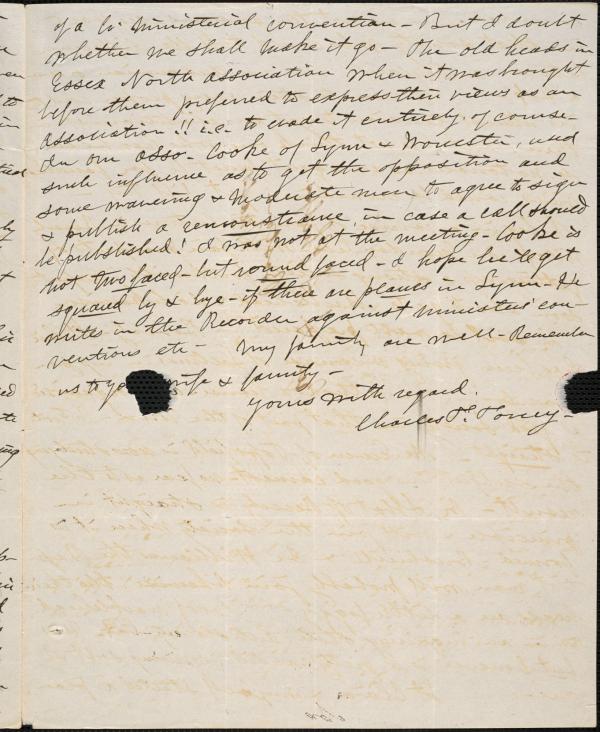 of a Ministerial convention - But I doubt
whether we shall make it go - The old heads in
Essex North association when it was brought
before them preferred to express their views as an
association!! i.e. to evade it entirely, of course -
In our asso - Cooke of Lynn & Worcester, used
such influence as to get the opposition and
some wavering & moderate men to agree to sign
& publish a remonstrance, in case a call should
be published! I was not at the meeting - Cooke is
not two faced - but round faced - I hope he'll get
squared by & bye - if there are planes in Lynn. He
writes in the Recorder against ministers' con-
ventions etc - My family are well - Remember
us to wife & family -
Yours with regard,
Charles T. Torrey -